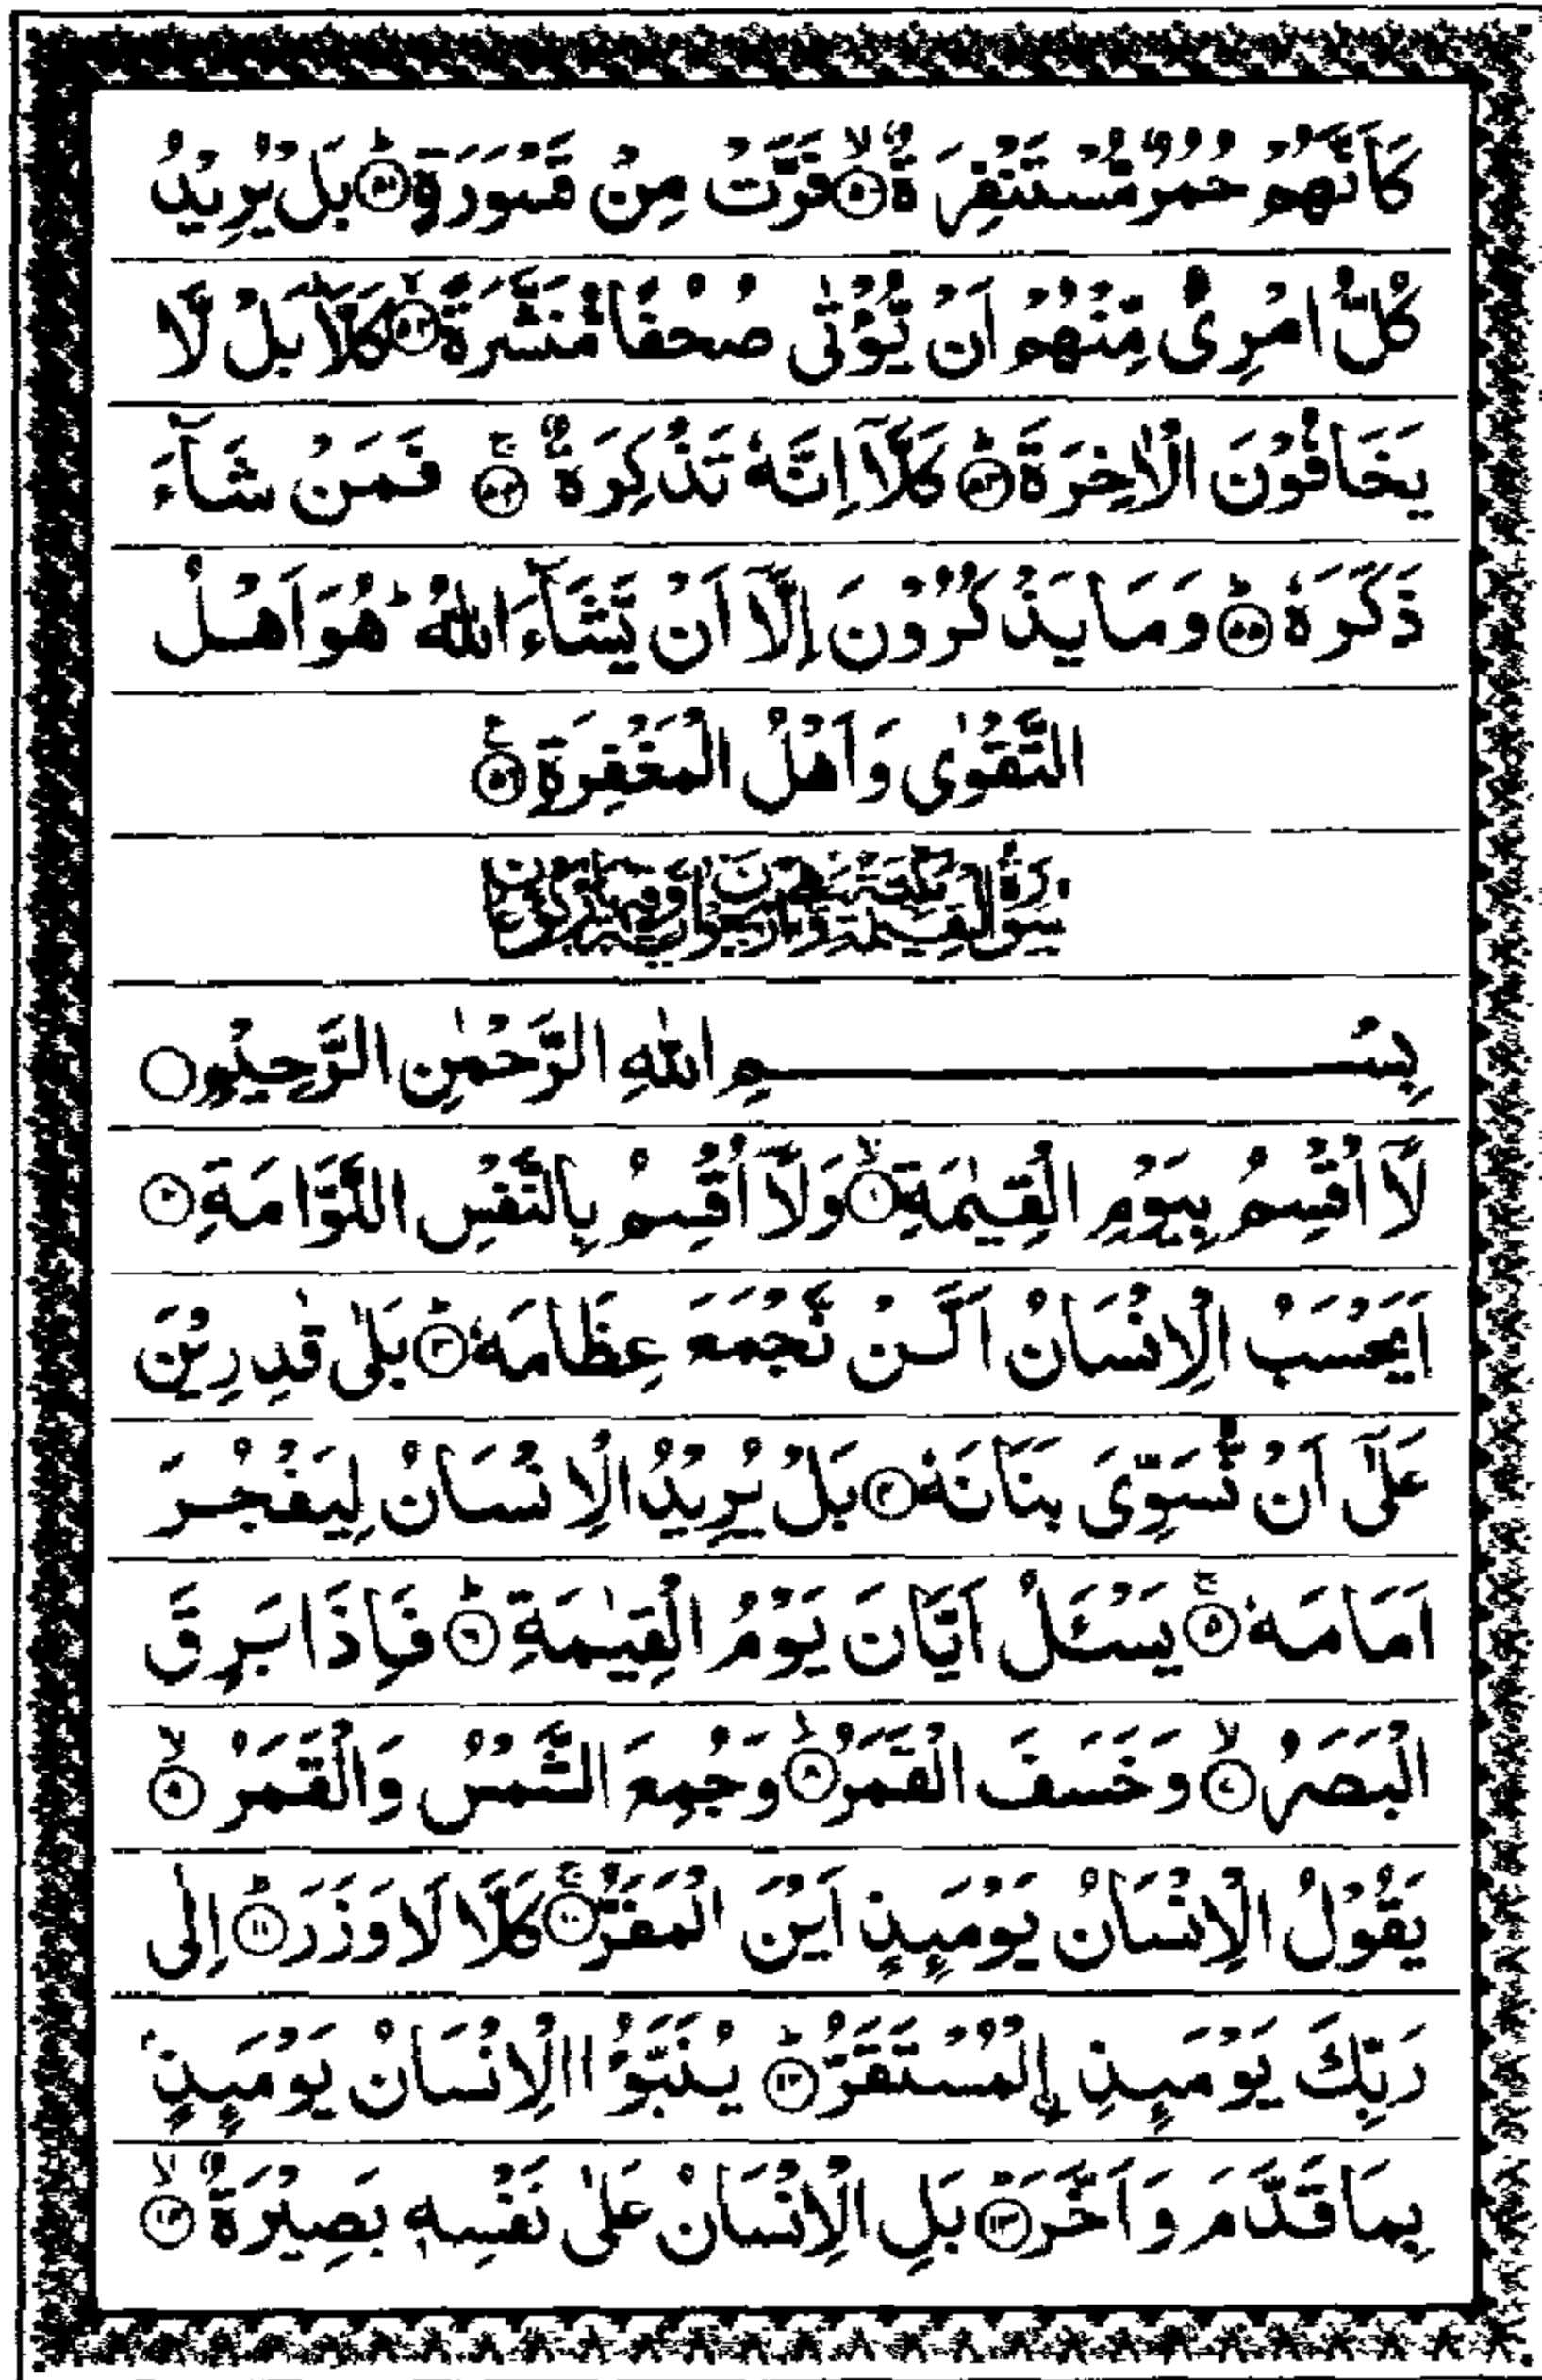 كَاَنَّهُمْ حُمُرٌ مُّسْتَنْفِرَةٌ ۙ﴿۵۰﴾ فَرَّتْ مِنْ قَسْوَرَةٍ ؕ﴿۵۱﴾ بَلْ يُرِيْدُ
كُلُّ امْرِئٍ مِّنْهُمْ اَنْ يُّؤْتٰى صُحُفًا مُّنَشَّرَةً ۙ﴿۵۲﴾ كَلَّا ؕ بَلْ لَّا
يَخَافُوْنَ الْاٰخِرَةَ ؕ﴿۵۳﴾ كَلَّاۤ اِنَّهٗ تَذْكِرَةٌ ۚ﴿۵۴﴾ فَمَنْ شَآءَ
ذَكَرَهٗ ؕ﴿۵۵﴾ وَمَا يَذْكُرُوْنَ اِلَّاۤ اَنْ يَّشَآءَ اللّٰهُ ؕ هُوَ اَهْلُ
التَّقْوٰى وَاَهْلُ الْمَغْفِرَةِ ﴿۵۶﴾
سُوْرَةُ الْقِيٰمَةِ
بِسْمِ اللّٰهِ الرَّحْمٰنِ الرَّحِيْمِ ○
لَاۤ اُقْسِمُ بِيَوْمِ الْقِيٰمَةِ ۙ﴿۱﴾ وَلَاۤ اُقْسِمُ بِالنَّفْسِ اللَّوَّامَةِ ﴿۲﴾
اَيَحْسَبُ الْاِنْسَانُ اَلَّنْ نَّجْمَعَ عِظَامَهٗ ؕ﴿۳﴾ بَلٰى قٰدِرِيْنَ
عَلٰۤى اَنْ نُّسَوِّىَ بَنَانَهٗ ﴿۴﴾ بَلْ يُرِيْدُ الْاِنْسَانُ لِيَفْجُرَ
اَمَامَهٗ ۚ﴿۵﴾ يَسْـَٔلُ اَيَّانَ يَوْمُ الْقِيٰمَةِ ؕ﴿۶﴾ فَاِذَا بَرِقَ
الْبَصَرُ ۙ﴿۷﴾ وَخَسَفَ الْقَمَرُ ۙ﴿۸﴾ وَجُمِعَ الشَّمْسُ وَالْقَمَرُ ۙ﴿۹﴾
يَقُوْلُ الْاِنْسَانُ يَوْمَىِٕذٍ اَيْنَ الْمَفَرُّ ۚ﴿۱۰﴾ كَلَّا لَا وَزَرَ ؕ﴿۱۱﴾ اِلٰى
رَبِّكَ يَوْمَىِٕذِ ۨالْمُسْتَقَرُّ ؕ﴿۱۲﴾ يُنَبَّؤُا الْاِنْسَانُ يَوْمَىِٕذٍۭ
بِمَا قَدَّمَ وَاَخَّرَ ؕ﴿۱۳﴾ بَلِ الْاِنْسَانُ عَلٰى نَفْسِهٖ بَصِيْرَةٌ ۙ﴿۱۴﴾